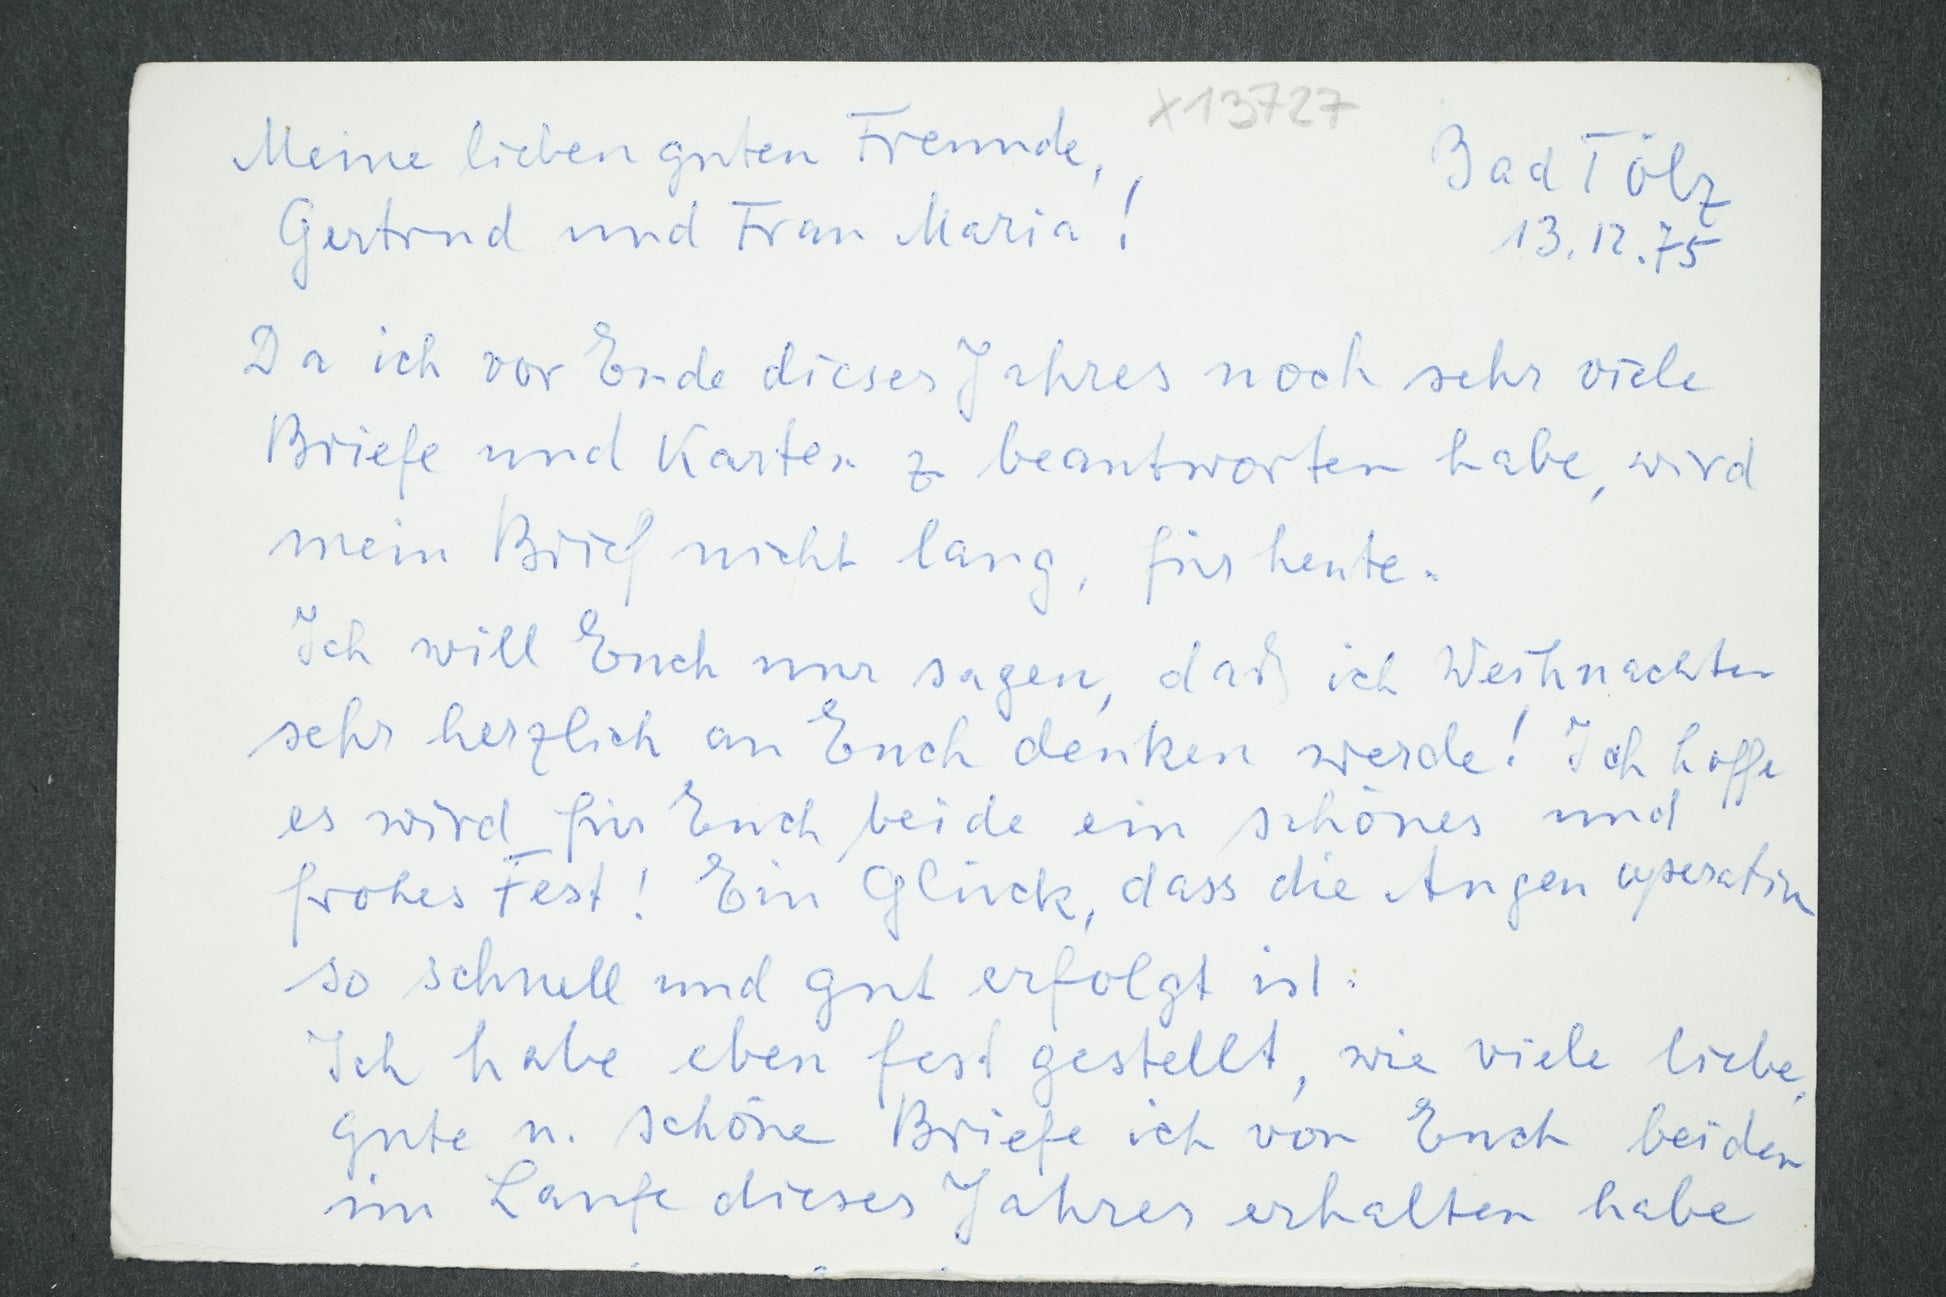 x13727
Meine lieben guten Freunde,
Bad Tölz
Gertrud und Frau Maria!
13.12.75
Da ich vor Ende dieses Jahres noch sehr viele
Briefe und Karten zu beantworten habe, wird
mein Brief nicht lang, für heute.
Ich will Euch nur sagen, daß ich Weihnachten
sehr herzlich an Euch denken werde! Ich hoffe
es wird für Euch beide ein schönes und
frohes Fest! Ein Glück, dass die Augen operation
so schnell und gut erfolgt ist.
Ich habe eben fest gestellt, wie viele liebe,
gute u. schöne Briefe ich von Euch beiden
im Laufe dieses Jahres erhalten habe